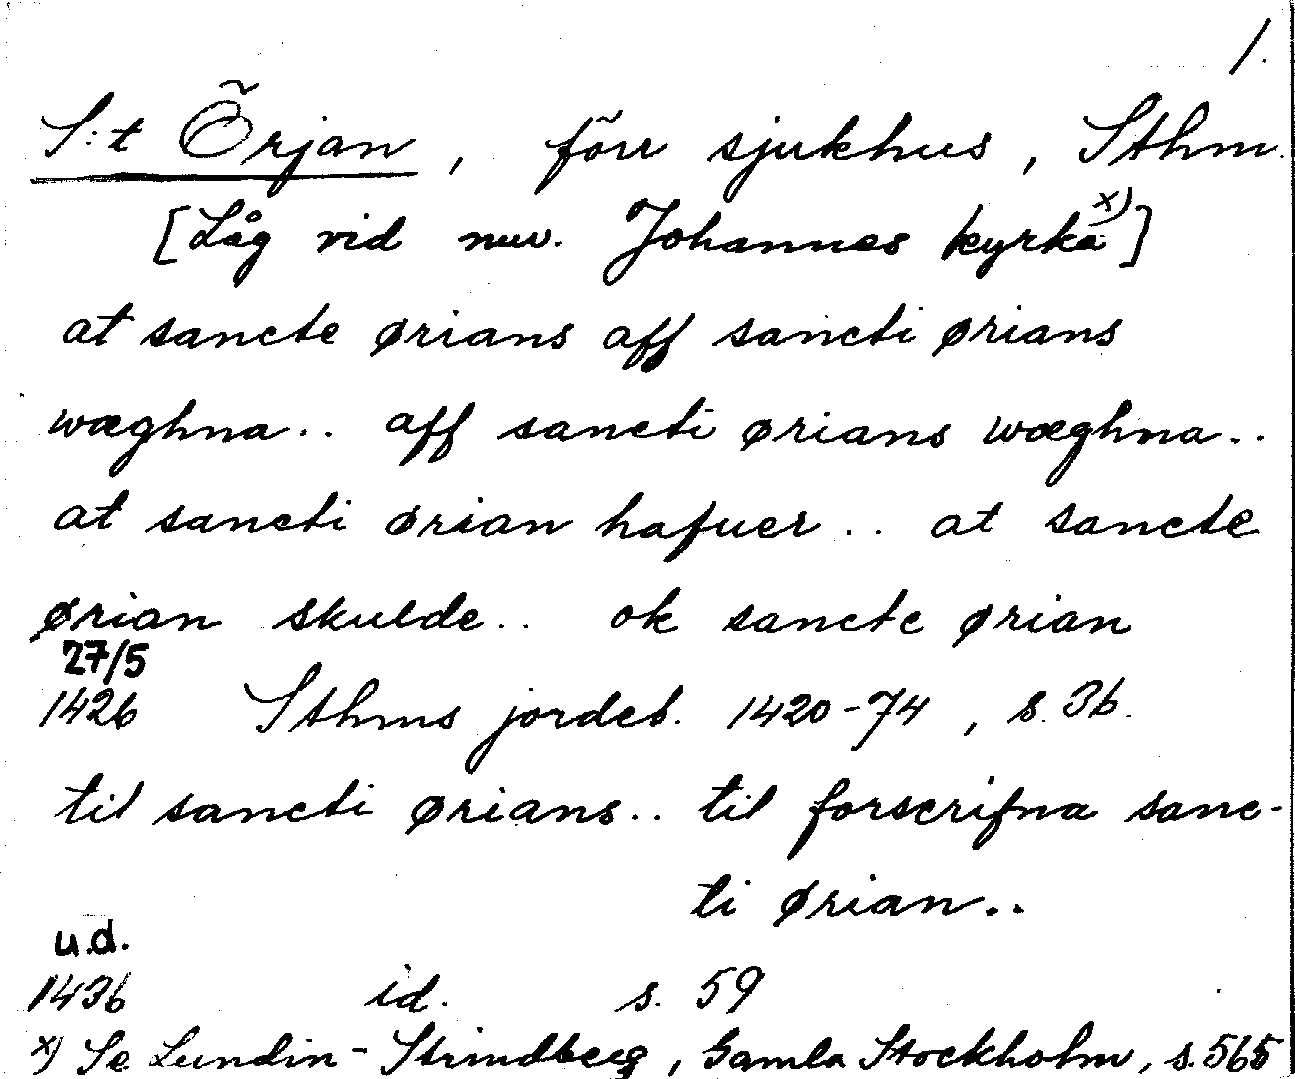 1.
S:t Örjan, förr sjukhus, Sthm.
[Låg vid nuv. Johannes kyrka x)]
at sancte ørians aff sancti ørians
wæghna.. aff sancti ørians wæghna..
at sancti ørian hafuer.. at sancte
ørian skulde.. ok sancte ørian
27/5
1426 Sthms jordeb. 1420-74, s. 36.
til sancti ørians.. til forscrifna sanc-
ti ørian..
u.d.
1436 id. s. 59
x) Se Lundin-Strindberg, Gamla Stockholm, s. 565